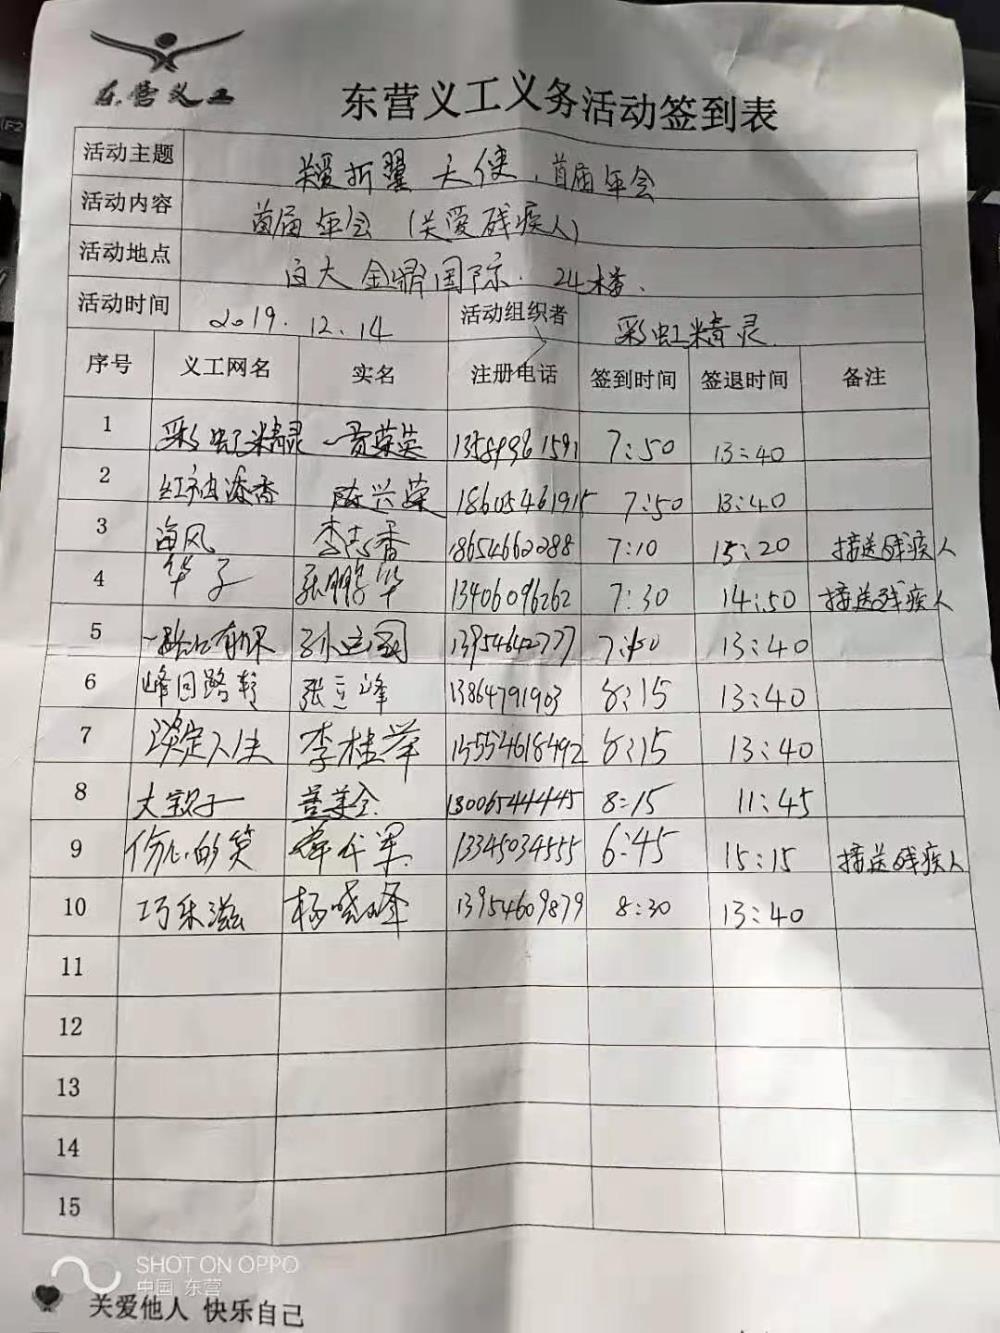 东营义工
东营义工义务活动签到表
活动主题 关爱折翼天使 首届年会
活动内容 首届年会 (关爱残疾人)
活动地点 百大金鼎国际 24楼.
活动时间 2019.12.14 活动组织者 彩虹精灵
序号 义工网名 实名 注册电话 签到时间 签退时间 备注
1 彩虹精灵 荣英 1358998 1591 7:50 13:40
2 红袖添香 陈兴荣 18605461915 7:50 13:40
3 海风 李志香 18654662288 7:10 15:20 接送残疾人
4 华子 张鹏华 13406096262 7:30 14:50 接送残疾人
5 一路上有你 13954642777 7:50 13:40
6 峰回路转 张立峰 13864791903 8:15 13:40
7 淡定人生 李桂举 15554618492 8:15 13:40
8 大宝子 美全 13006544445 8:15 11:45
9 伤心的笑 薛代军 13345034555 6:45 15:15 接送残疾人
10 巧乐滋 杨晓峰 13954609879 8:30 13:40
11
12
13
14
15
SHOT ON OPPO
中国 东营
关爱他人 快乐自己